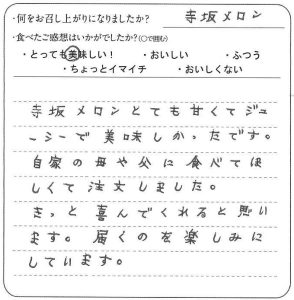 ・何をお召し上がりになりましたか？ 寺坂メロン
・食べたご感想はいかがでしたか？(〇で囲む)
・とっても美味しい！ ・おいしい ・ふつう
・ちょっとイマイチ ・おいしくない
寺坂メロンとても甘くてジュ
ーシーで美味しかったです。
自家の母や父に食べてほ
しくて注文しました。
きっと喜んでくれると思い
ます。届くのを楽しみに
しています。